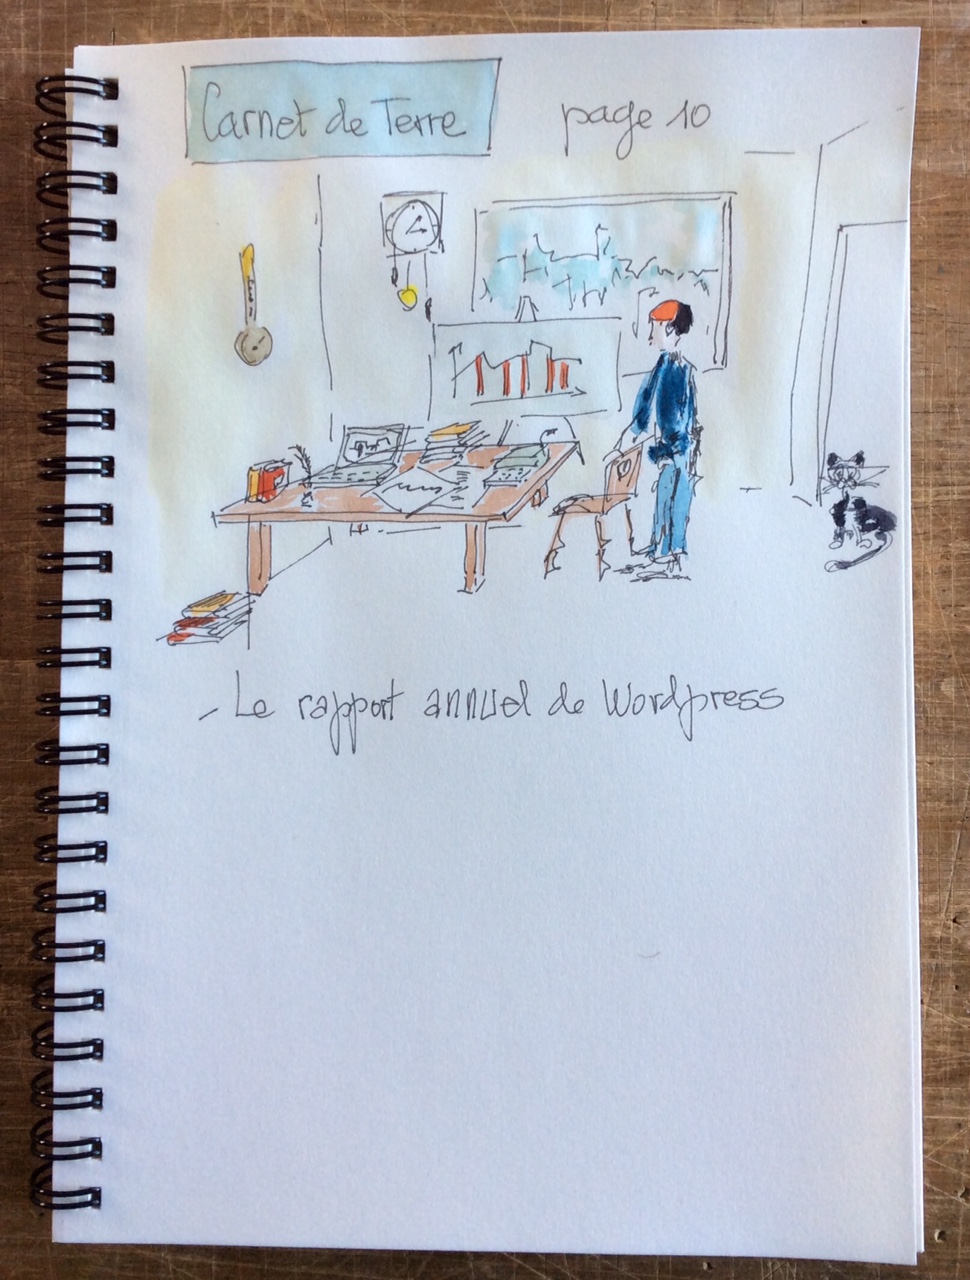 Carnet de Terre page 10
- Le rapport annuel de Wordpress